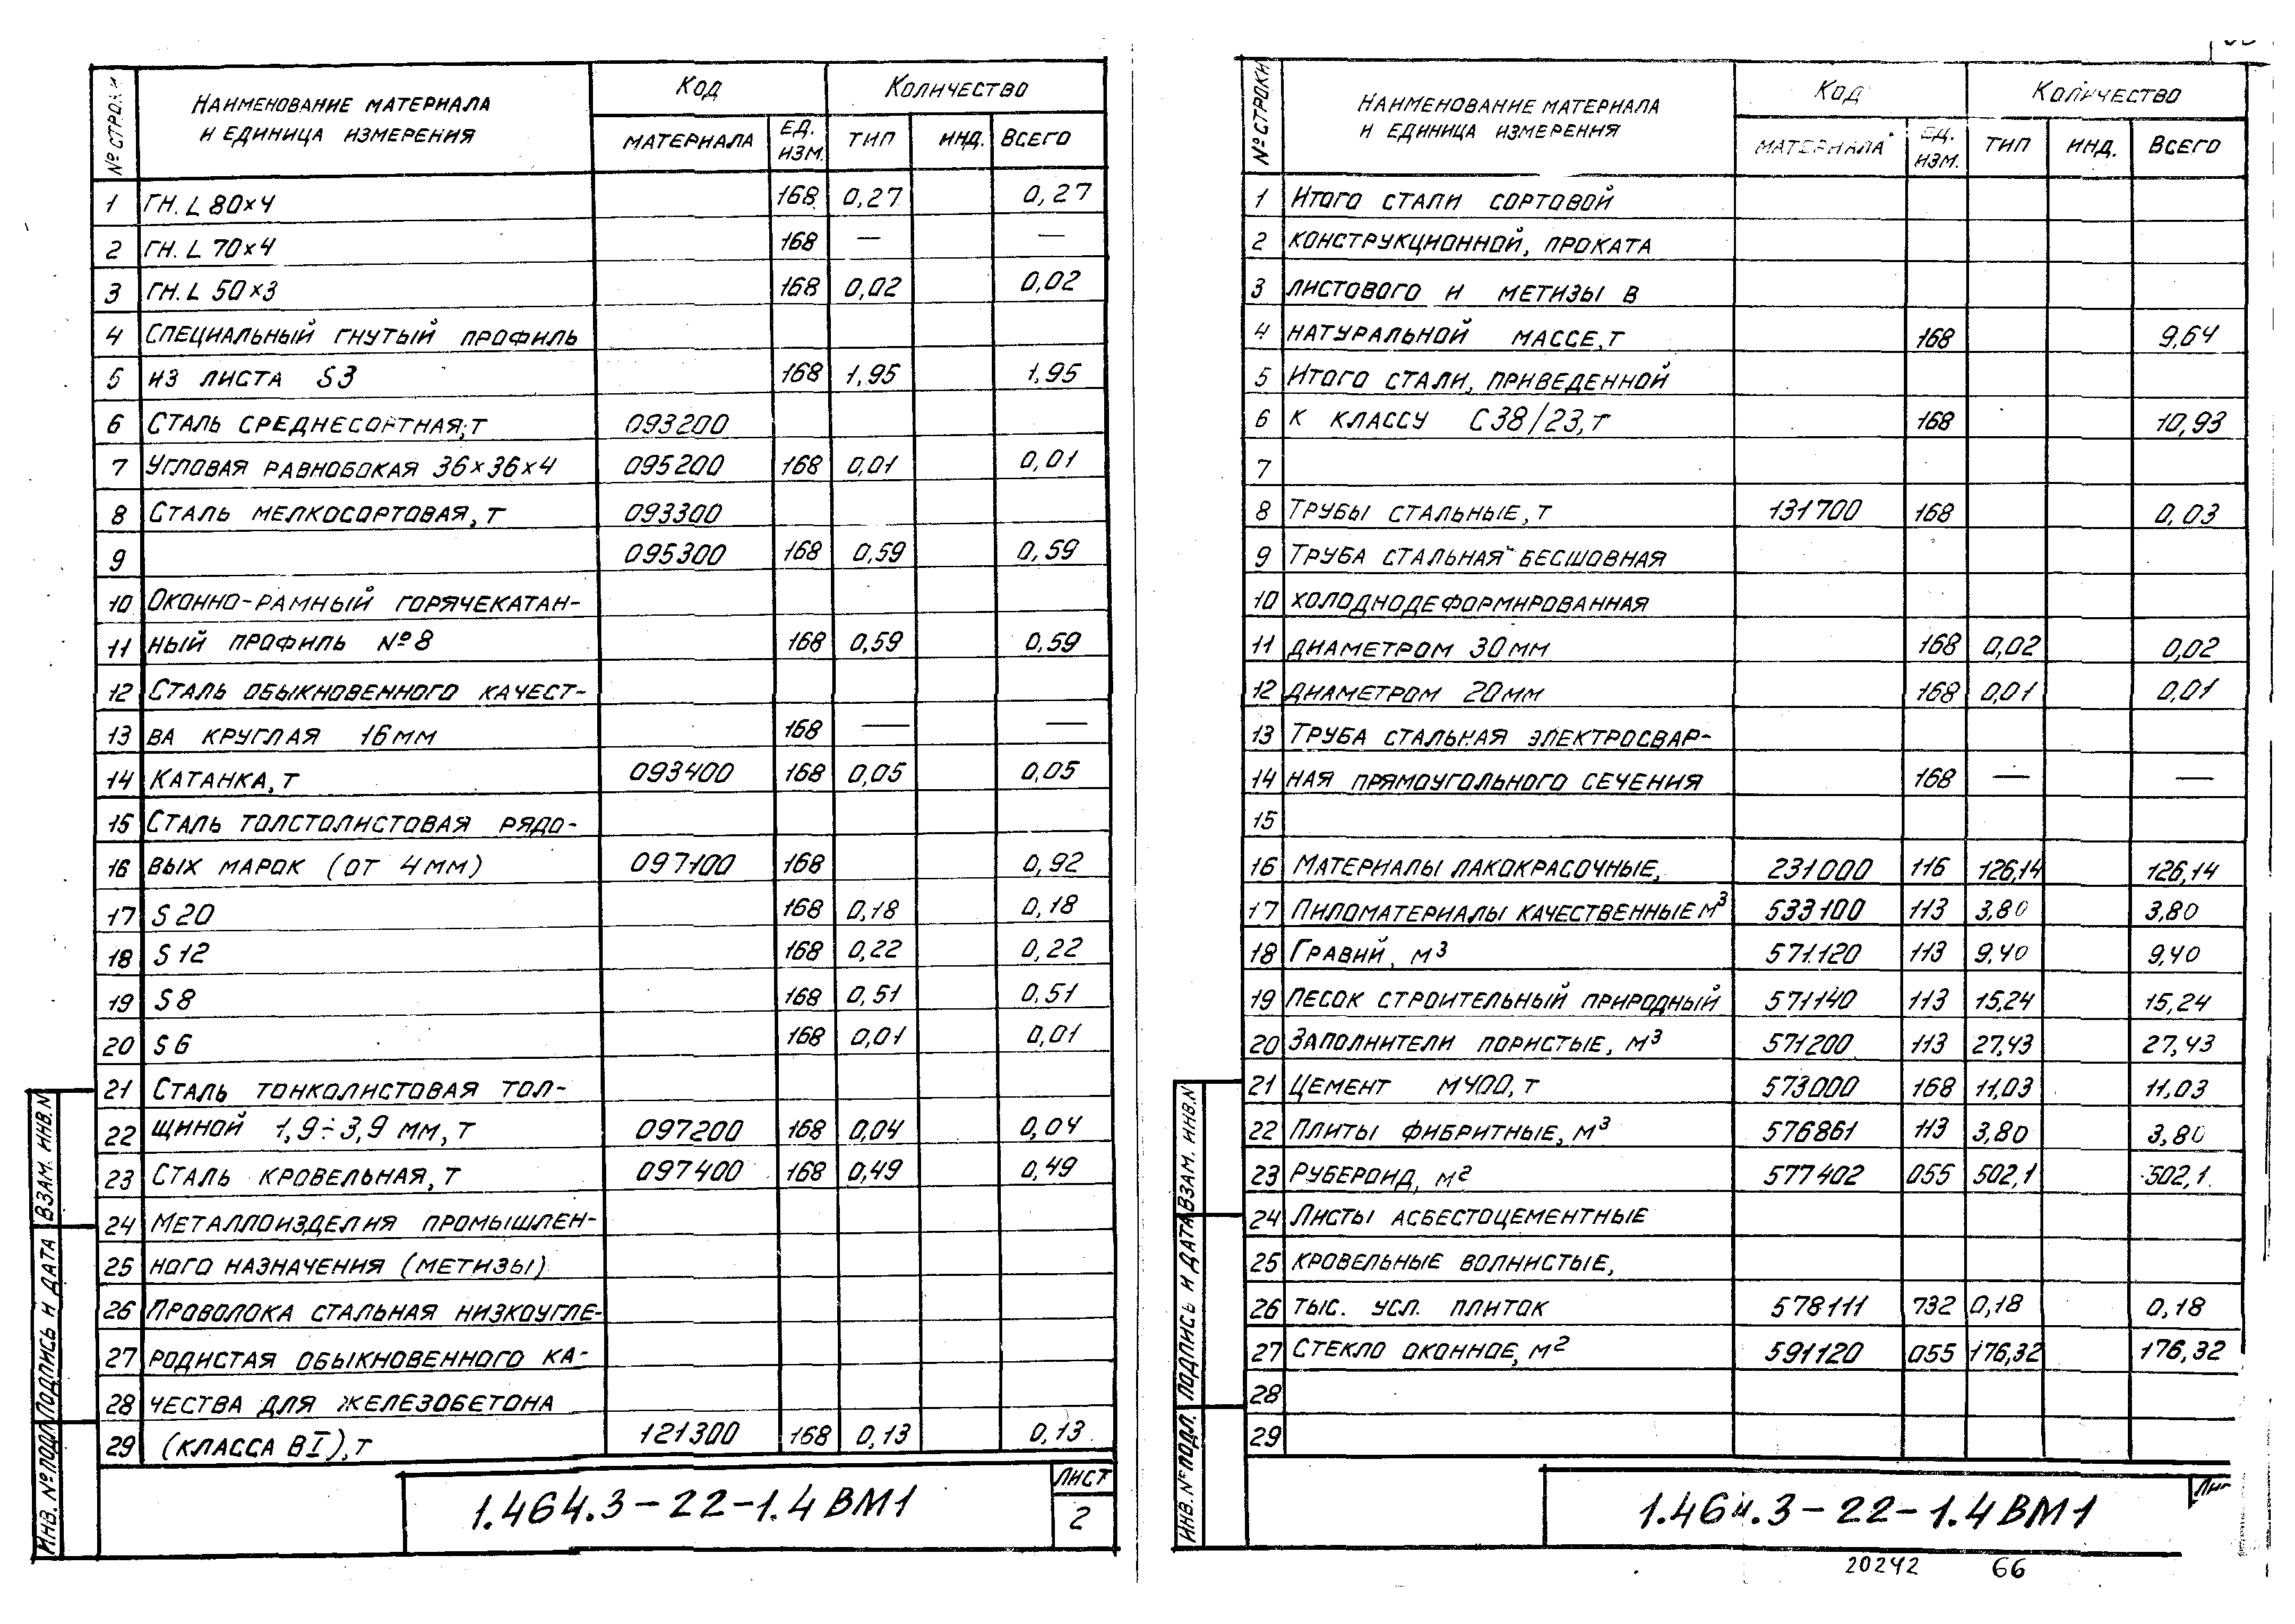 № СТРОКИ | НАИМЕНОВАНИЕ МАТЕРИАЛА И ЕДИНИЦА ИЗМЕРЕНИЯ | КОД | КОЛИЧЕСТВО
МАТЕРИАЛА | ЕД. ИЗМ. | ТИП | ИНД. | ВСЕГО
1 ГН. L 80×4 168 0,27 0,27
2 ГН. L 70×4 168 — —
3 ГН. L 50×3 168 0,02 0,02
4 СПЕЦИАЛЬНЫЙ ГНУТЫЙ ПРОФИЛЬ
5 ИЗ ЛИСТА S3 168 1,95 1,95
6 СТАЛЬ СРЕДНЕСОРТНАЯ, Т 093200
7 УГЛОВАЯ РАВНОБОКАЯ 36×36×4 095200 168 0,01 0,01
8 СТАЛЬ МЕЛКОСОРТОВАЯ, Т 093300
9 095300 168 0,59 0,59
10 ОКОННО-РАМНЫЙ ГОРЯЧЕКАТАН-
11 НЫЙ ПРОФИЛЬ №8 168 0,59 0,59
12 СТАЛЬ ОБЫКНОВЕННОГО КАЧЕСТ-
13 ВА КРУГЛАЯ 16ММ 168 — —
14 КАТАНКА, Т 093400 168 0,05 0,05
15 СТАЛЬ ТОЛСТОЛИСТОВАЯ РЯДО-
16 ВЫХ МАРОК (ОТ 4ММ) 097100 168 0,92
17 S 20 168 0,18 0,18
18 S 12 168 0,22 0,22
19 S 8 168 0,51 0,51
20 S 6 168 0,01 0,01
21 СТАЛЬ ТОНКОЛИСТОВАЯ ТОЛ-
22 ЩИНОЙ 1,9÷3,9 ММ, Т 097200 168 0,04 0,04
23 СТАЛЬ КРОВЕЛЬНАЯ, Т 097400 168 0,49 0,49
24 МЕТАЛЛОИЗДЕЛИЯ ПРОМЫШЛЕН-
25 НОГО НАЗНАЧЕНИЯ (МЕТИЗЫ)
26 ПРОВОЛОКА СТАЛЬНАЯ НИЗКОУГЛЕ-
27 РОДИСТАЯ ОБЫКНОВЕННОГО КА-
28 ЧЕСТВА ДЛЯ ЖЕЛЕЗОБЕТОНА
29 (КЛАССА ВI), Т 121300 168 0,13 0,13
ИНВ. № ПОДЛ. ПОДПИСЬ И ДАТА ВЗАМ. ИНВ. N
1.464.3-22-1.4 ВМ1
ЛИСТ
2
№ СТРОКИ | НАИМЕНОВАНИЕ МАТЕРИАЛА И ЕДИНИЦА ИЗМЕРЕНИЯ | КОД | КОЛИЧЕСТВО
МАТЕРИАЛА | ЕД. ИЗМ. | ТИП | ИНД. | ВСЕГО
1 ИТОГО СТАЛИ СОРТОВОЙ
2 КОНСТРУКЦИОННОЙ, ПРОКАТА
3 ЛИСТОВОГО И МЕТИЗЫ В
4 НАТУРАЛЬНОЙ МАССЕ, Т 168 9,64
5 ИТОГО СТАЛИ, ПРИВЕДЕННОЙ
6 К КЛАССУ С38/23, Т 168 10,93
7
8 ТРУБЫ СТАЛЬНЫЕ, Т 131700 168 0,03
9 ТРУБА СТАЛЬНАЯ БЕСШОВНАЯ
10 ХОЛОДНОДЕФОРМИРОВАННАЯ
11 ДИАМЕТРОМ 30ММ 168 0,02 0,02
12 ДИАМЕТРОМ 20ММ 168 0,01 0,01
13 ТРУБА СТАЛЬНАЯ ЭЛЕКТРОСВАР-
14 НАЯ ПРЯМОУГОЛЬНОГО СЕЧЕНИЯ 168 — —
15
16 МАТЕРИАЛЫ ЛАКОКРАСОЧНЫЕ, 231000 116 126,14 126,14
17 ПИЛОМАТЕРИАЛЫ КАЧЕСТВЕННЫЕ М³ 533100 113 3,80 3,80
18 ГРАВИЙ, М³ 571120 113 9,40 9,40
19 ПЕСОК СТРОИТЕЛЬНЫЙ ПРИРОДНЫЙ 571140 113 15,24 15,24
20 ЗАПОЛНИТЕЛИ ПОРИСТЫЕ, М³ 571200 113 27,43 27,43
21 ЦЕМЕНТ М400, Т 573000 168 11,03 11,03
22 ПЛИТЫ ФИБРИТНЫЕ, М³ 576861 113 3,80 3,80
23 РУБЕРОИД, М² 577402 055 502,1 502,1
24 ЛИСТЫ АСБЕСТОЦЕМЕНТНЫЕ
25 КРОВЕЛЬНЫЕ ВОЛНИСТЫЕ,
26 ТЫС. УСЛ. ПЛИТОК 578111 732 0,18 0,18
27 СТЕКЛО ОКОННОЕ, М² 591120 055 176,32 176,32
28
29
ИНВ. № ПОДЛ. ПОДПИСЬ И ДАТА ВЗАМ. ИНВ. N
1.464.3-22-1.4 ВМ1
20242 66